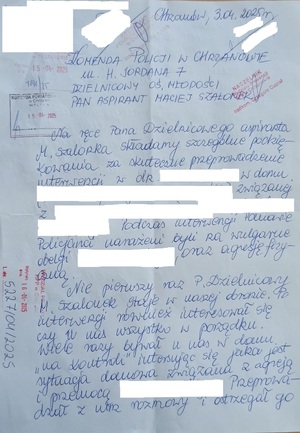 Chrzanów, 3.04.2025r.
KOMENDA POLICJI W CHRZANOWIE
UL. H. JORDANA 7
DZIELNICOWY OŚ. MŁODOŚCI
PAN ASPIRANT MACIEJ SZALONEK
Na ręce Pana Dzielnicowego aspiranta
M. Szalonka składamy szczególne podzię-
kowania za skuteczne przeprowadzenie
interwencji w dn. w domu
związanej
z
Podczas interwencji Panowie
Policjanci narażeni byli na wulgarne
obelgi oraz agresję fizy-
czną.
Nie pierwszy raz P. Dzielnicowy
M. Szalonek staje w naszej obronie. Po
interwencji również interesował się
czy u nas wszystko w porządku.
Wiele razy bywał u nas w domu
"na kontroli" interesując się jaka jest
sytuacja domowa związana z agresją
i przemocą Przeprowa-
dzał z nim rozmowy i ostrzegał go
532/04/2025